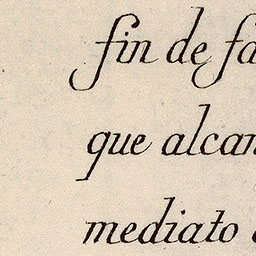 fin de fa
que alcan
mediato